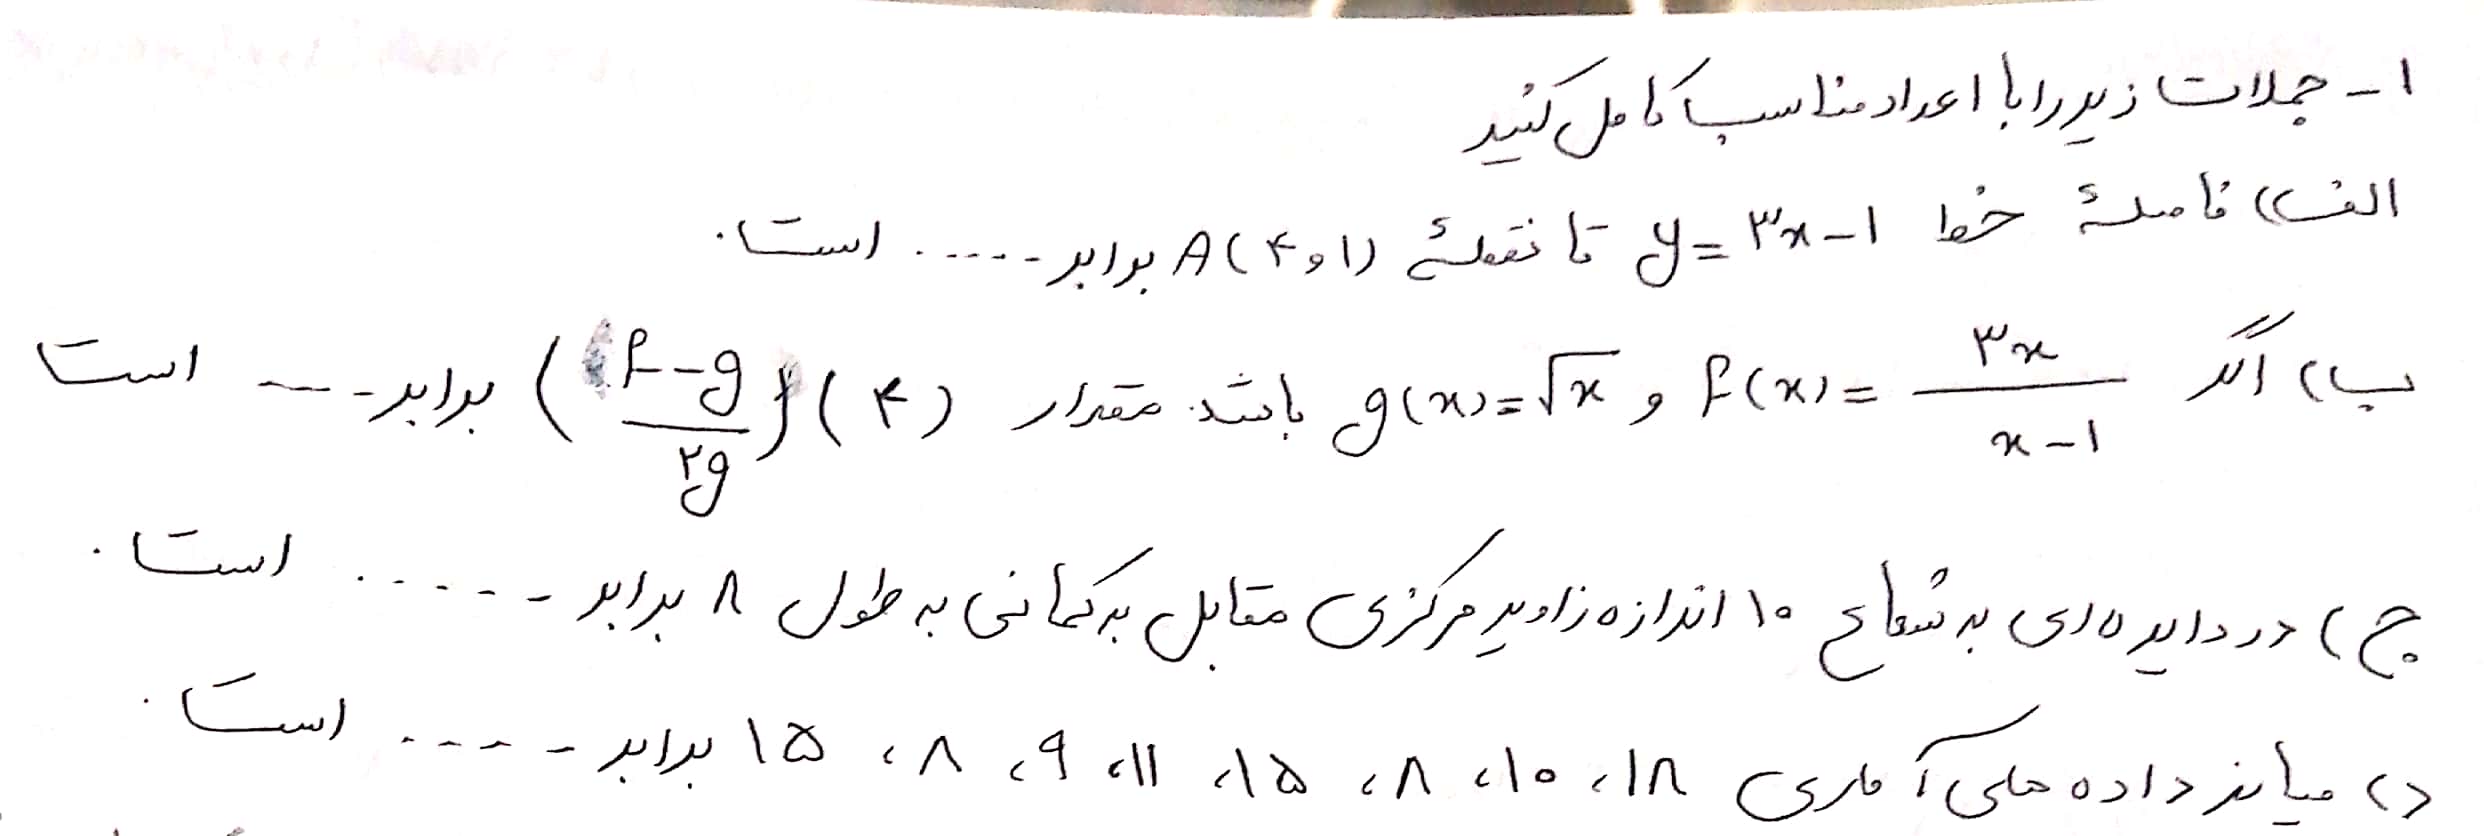 ۱- جملات زیر را با اعداد مناسب کامل کنید
الف) فاصلهٔ خط y = ۳x - ۱ تا نقطهٔ A(۴ و ۱) برابر ..... است.
ب) اگر f(x) = ۳x / x - ۱ و g(x) = √x باشد مقدار (f - g / ۲g)(۴) برابر ..... است
ج) در دایره ای به شعاع ۱۰ اندازه زاویه مرکزی مقابل به کمانی به طول ۸ برابر ..... است.
د) میانه داده های آماری ۱۸، ۱۰، ۸، ۱۵، ۱۱، ۹، ۸، ۱۵ برابر ..... است.